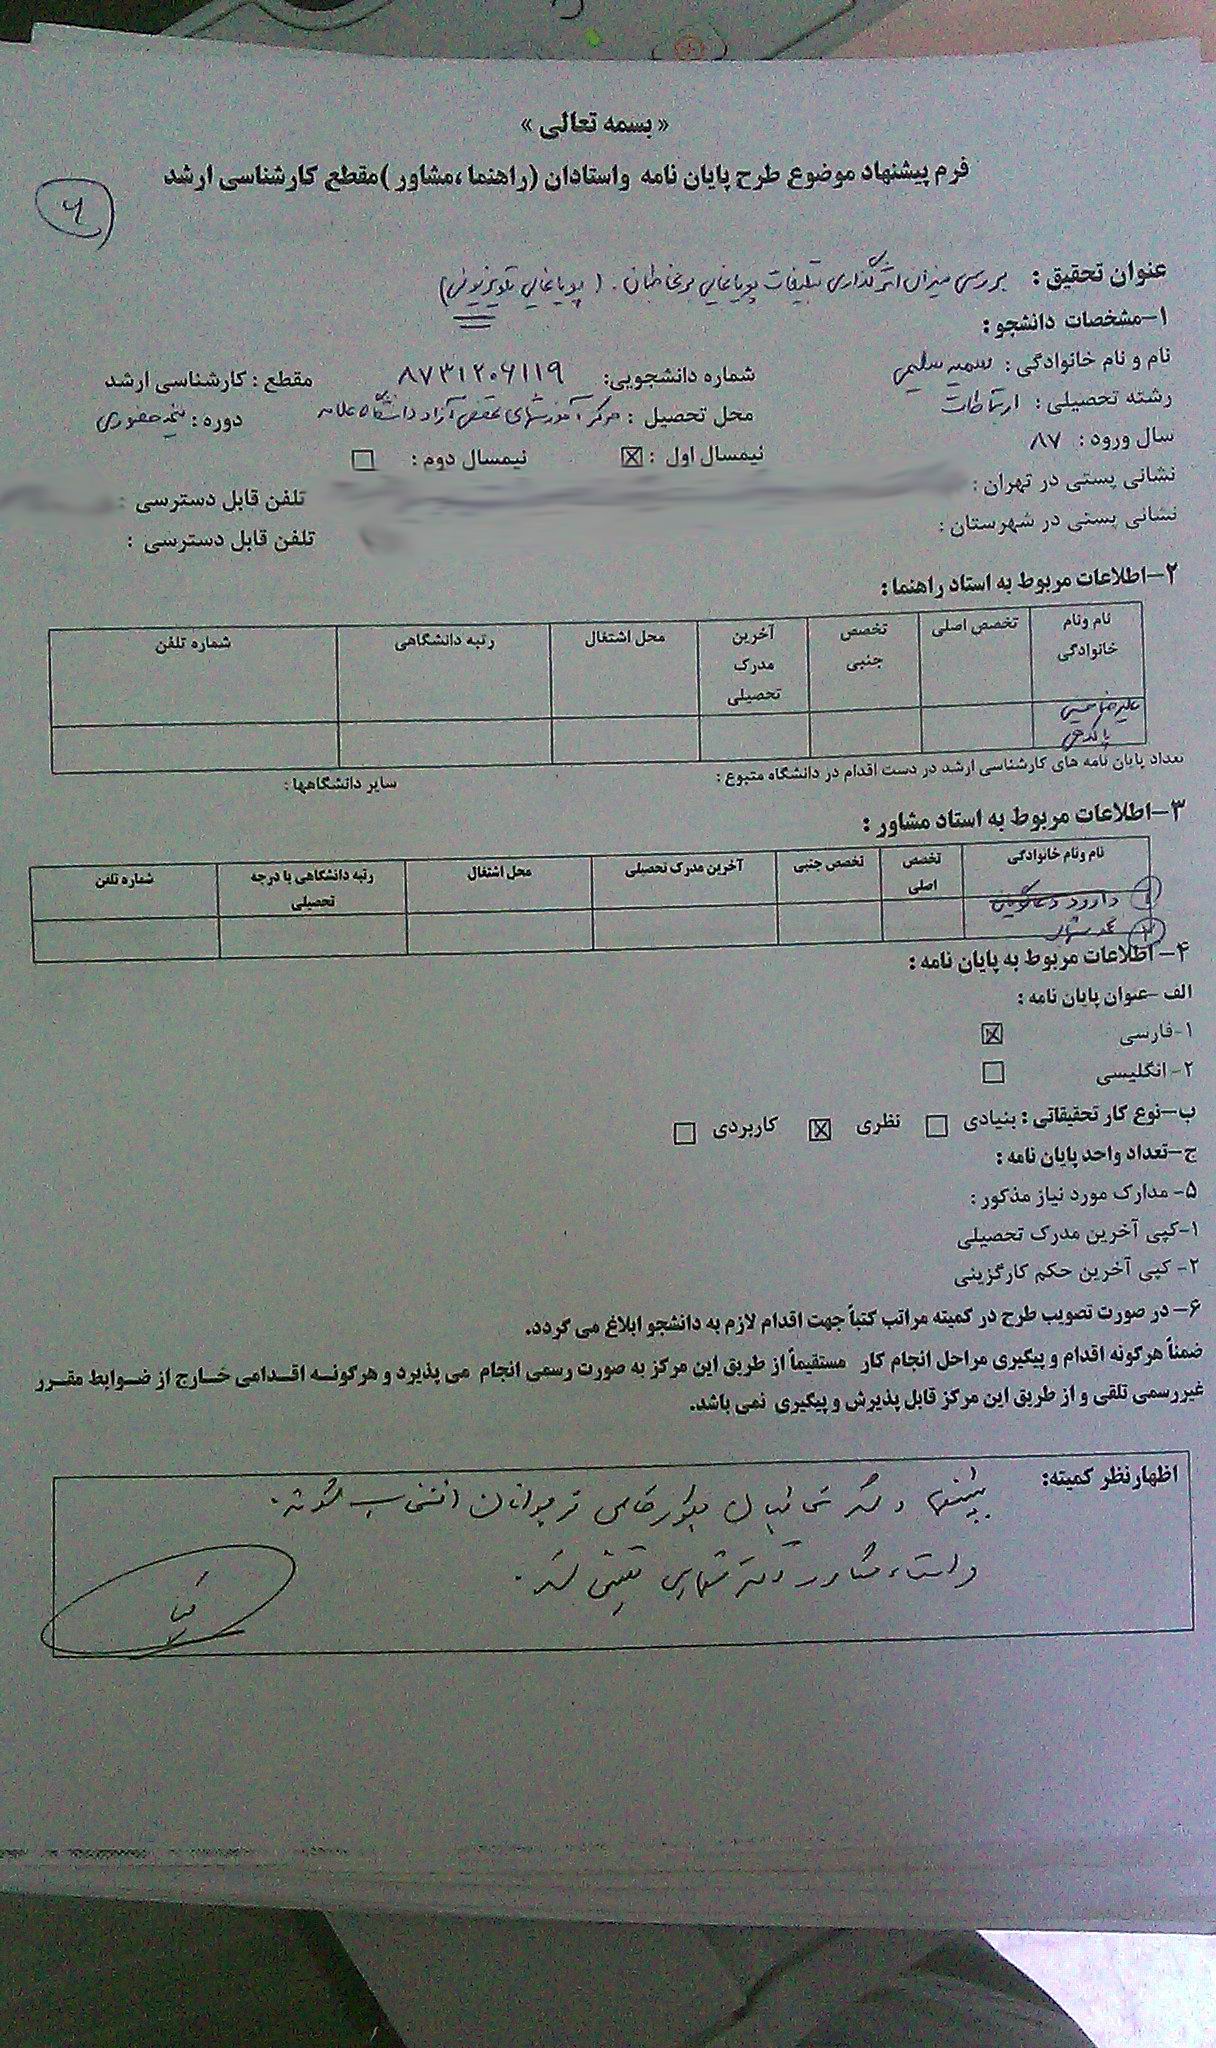 « بسمه تعالی »
فرم پیشنهاد موضوع طرح پایان نامه واستادان (راهنما ،مشاور )مقطع کارشناسی ارشد
عنوان تحقیق : بررسی میزان اثرگذاری تبلیغات پویانمایی بر مخاطبان . ( پویانمایی تلویزیونی )
۱-مشخصات دانشجو :
نام و نام خانوادگی : سمیه سلیمی شماره دانشجویی: ۸۷۳۱۲۰۶۱۱۹ مقطع : کارشناسی ارشد
رشته تحصیلی : ارتباطات محل تحصیل : مرکز آموزشهای تخصصی آزاد دانشگاه علامه دوره : نیمه حضوری
سال ورود : ۸۷ نیمسال اول : ☒ نیمسال دوم : ☐
نشانی پستی در تهران : تلفن قابل دسترسی :
نشانی پستی در شهرستان : تلفن قابل دسترسی :
۲-اطلاعات مربوط به استاد راهنما :
نام ونام خانوادگی تخصص اصلی تخصص جنبی آخرین مدرک تحصیلی محل اشتغال رتبه دانشگاهی شماره تلفن
علیرضا حسینی پاکدهی
تعداد پایان نامه های کارشناسی ارشد در دست اقدام در دانشگاه متبوع : سایر دانشگاهها :
۳-اطلاعات مربوط به استاد مشاور :
نام ونام خانوادگی تخصص اصلی تخصص جنبی آخرین مدرک تحصیلی محل اشتغال رتبه دانشگاهی یا درجه تحصیلی شماره تلفن
۱ داوود دعاگویان
۲
۴- اطلاعات مربوط به پایان نامه :
الف -عنوان پایان نامه :
۱-فارسی ☒
۲- انگلیسی ☐
ب-نوع کار تحقیقاتی : بنیادی ☐ نظری ☒ کاربردی ☐
ج-تعداد واحد پایان نامه :
۵- مدارک مورد نیاز مذکور :
۱-کپی آخرین مدرک تحصیلی
۲- کپی آخرین حکم کارگزینی
۶- در صورت تصویب طرح در کمیته مراتب کتباً جهت اقدام لازم به دانشجو ابلاغ می گردد.
ضمناً هرگونه اقدام و پیگیری مراحل انجام کار مستقیماً از طریق این مرکز به صورت رسمی انجام می پذیرد و هرگونه اقدامی خارج از ضوابط مقرر
غیررسمی تلقی و از طریق این مرکز قابل پذیرش و پیگیری نمی باشد.
اظهارنظر کمیته:
انتخاب شوند .
و استاد مشاور دکتر تعیین شد .